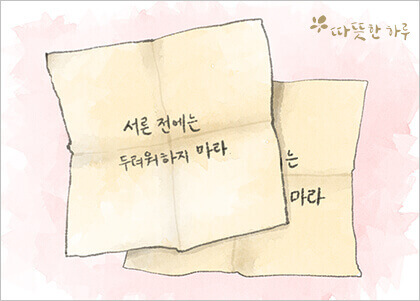 따뜻한 하루
서른 전에는
두려워하지 마라
는
마라